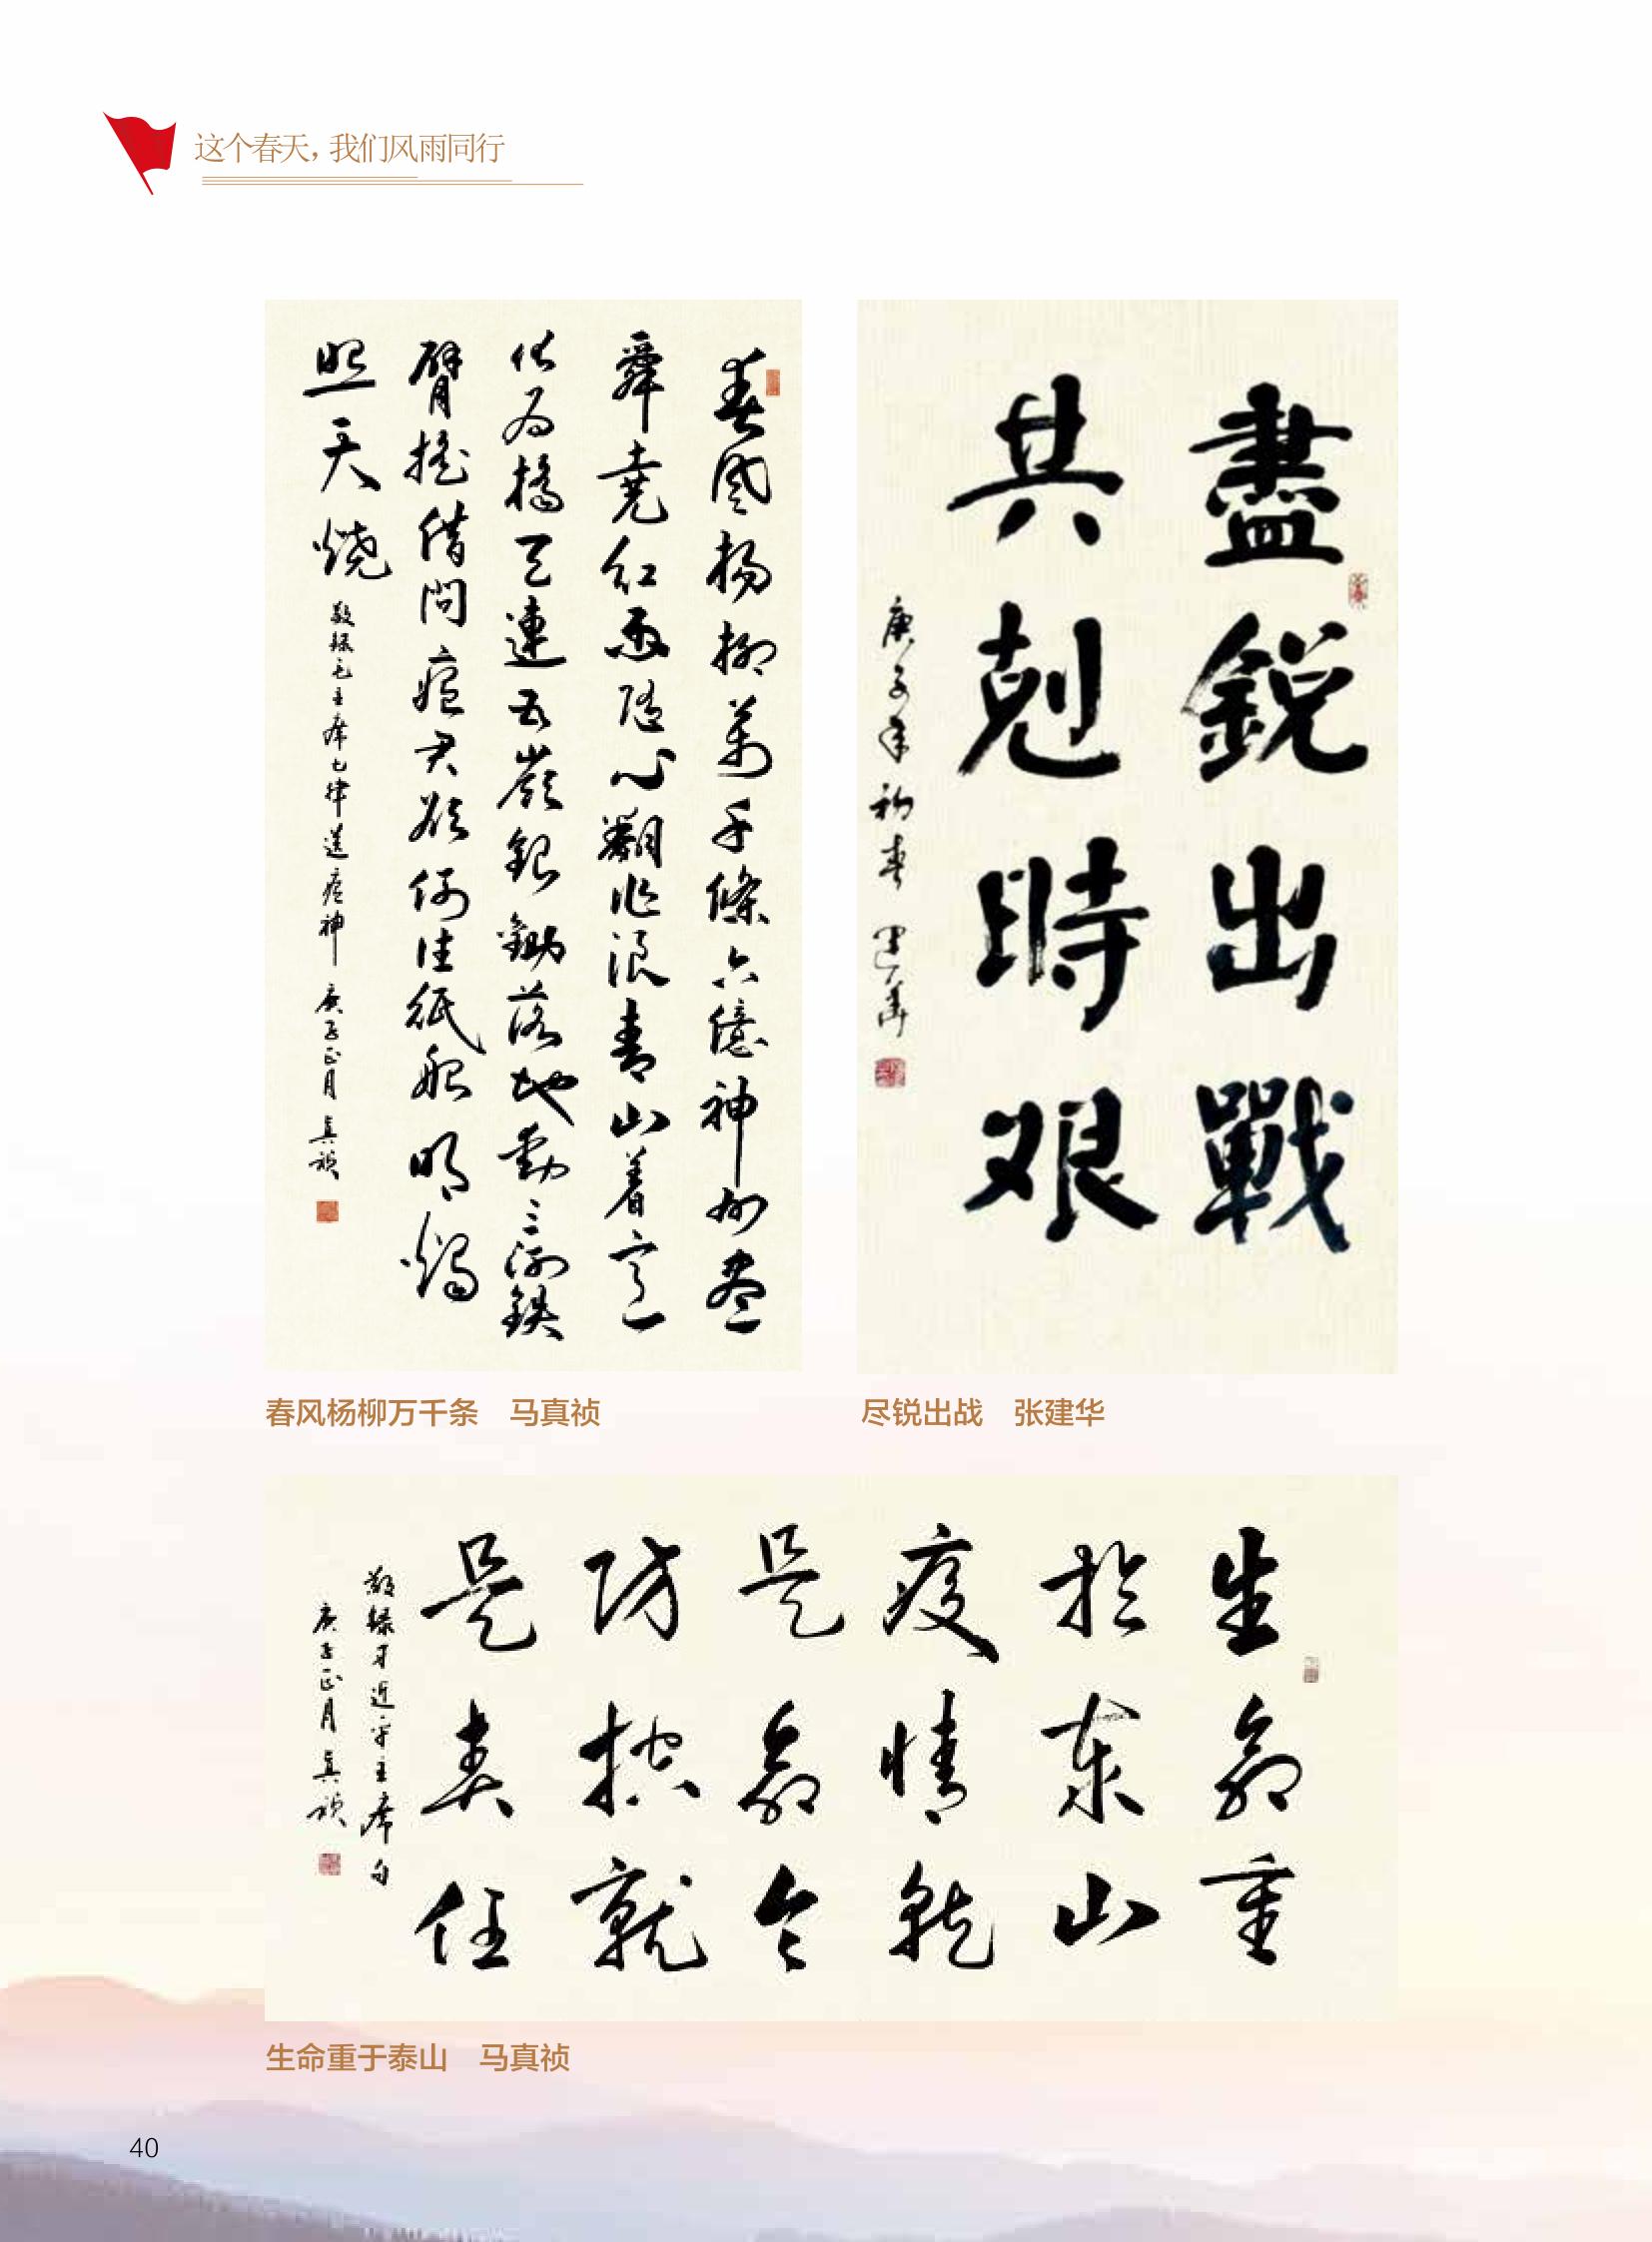 这个春天，我们风雨同行
春風楊柳萬千條六億神州盡
舜堯紅雨隨心翻作浪青山着意
化為橋天連五嶺銀鋤落地動三河鐵
臂搖借問瘟君欲何往紙船明燭
照天燒
敬録毛主席七律送瘟神 庚子正月 真禎
盡銳出戰
共剋時艱
庚子年初春 建華
春风杨柳万千条 马真祯
尽锐出战 张建华
生命重
於泰山
疫情就
是命令
防控就
是責任
敬録习近平主席句
庚子正月 真禎
生命重于泰山 马真祯
40